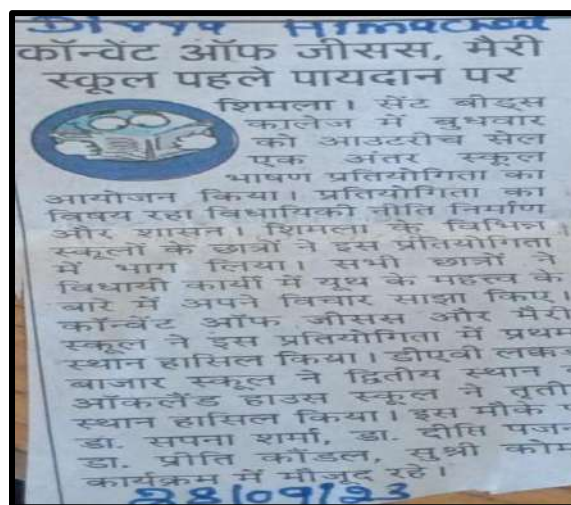 Divya Himachal
कॉन्वेंट ऑफ जीसस, मैरी
स्कूल पहले पायदान पर
शिमला। सेंट बीड्स
कालेज में बुधवार
को आउटरीच सेल
एक अंतर स्कूल
भाषण प्रतियोगिता का
आयोजन किया। प्रतियोगिता का
विषय रहा विधायिकी नीति निर्माण
और शासन। शिमला के विभिन्न
स्कूलों के छात्रों ने इस प्रतियोगिता
में भाग लिया। सभी छात्रों ने
विधायी कार्यों में यूथ के महत्त्व के
बारे में अपने विचार साझा किए।
कॉन्वेंट ऑफ जीसस और मैरी
स्कूल ने इस प्रतियोगिता में प्रथम
स्थान हासिल किया। डीएवी
बाजार स्कूल ने द्वितीय स्थान
ऑकलैंड हाउस स्कूल ने
स्थान हासिल किया। इस मौके
डा. सपना शर्मा, डा. दीप्ति
डा. प्रीति कौंडल, सुश्री
कार्यक्रम में मौजूद रहे।
28/09/23